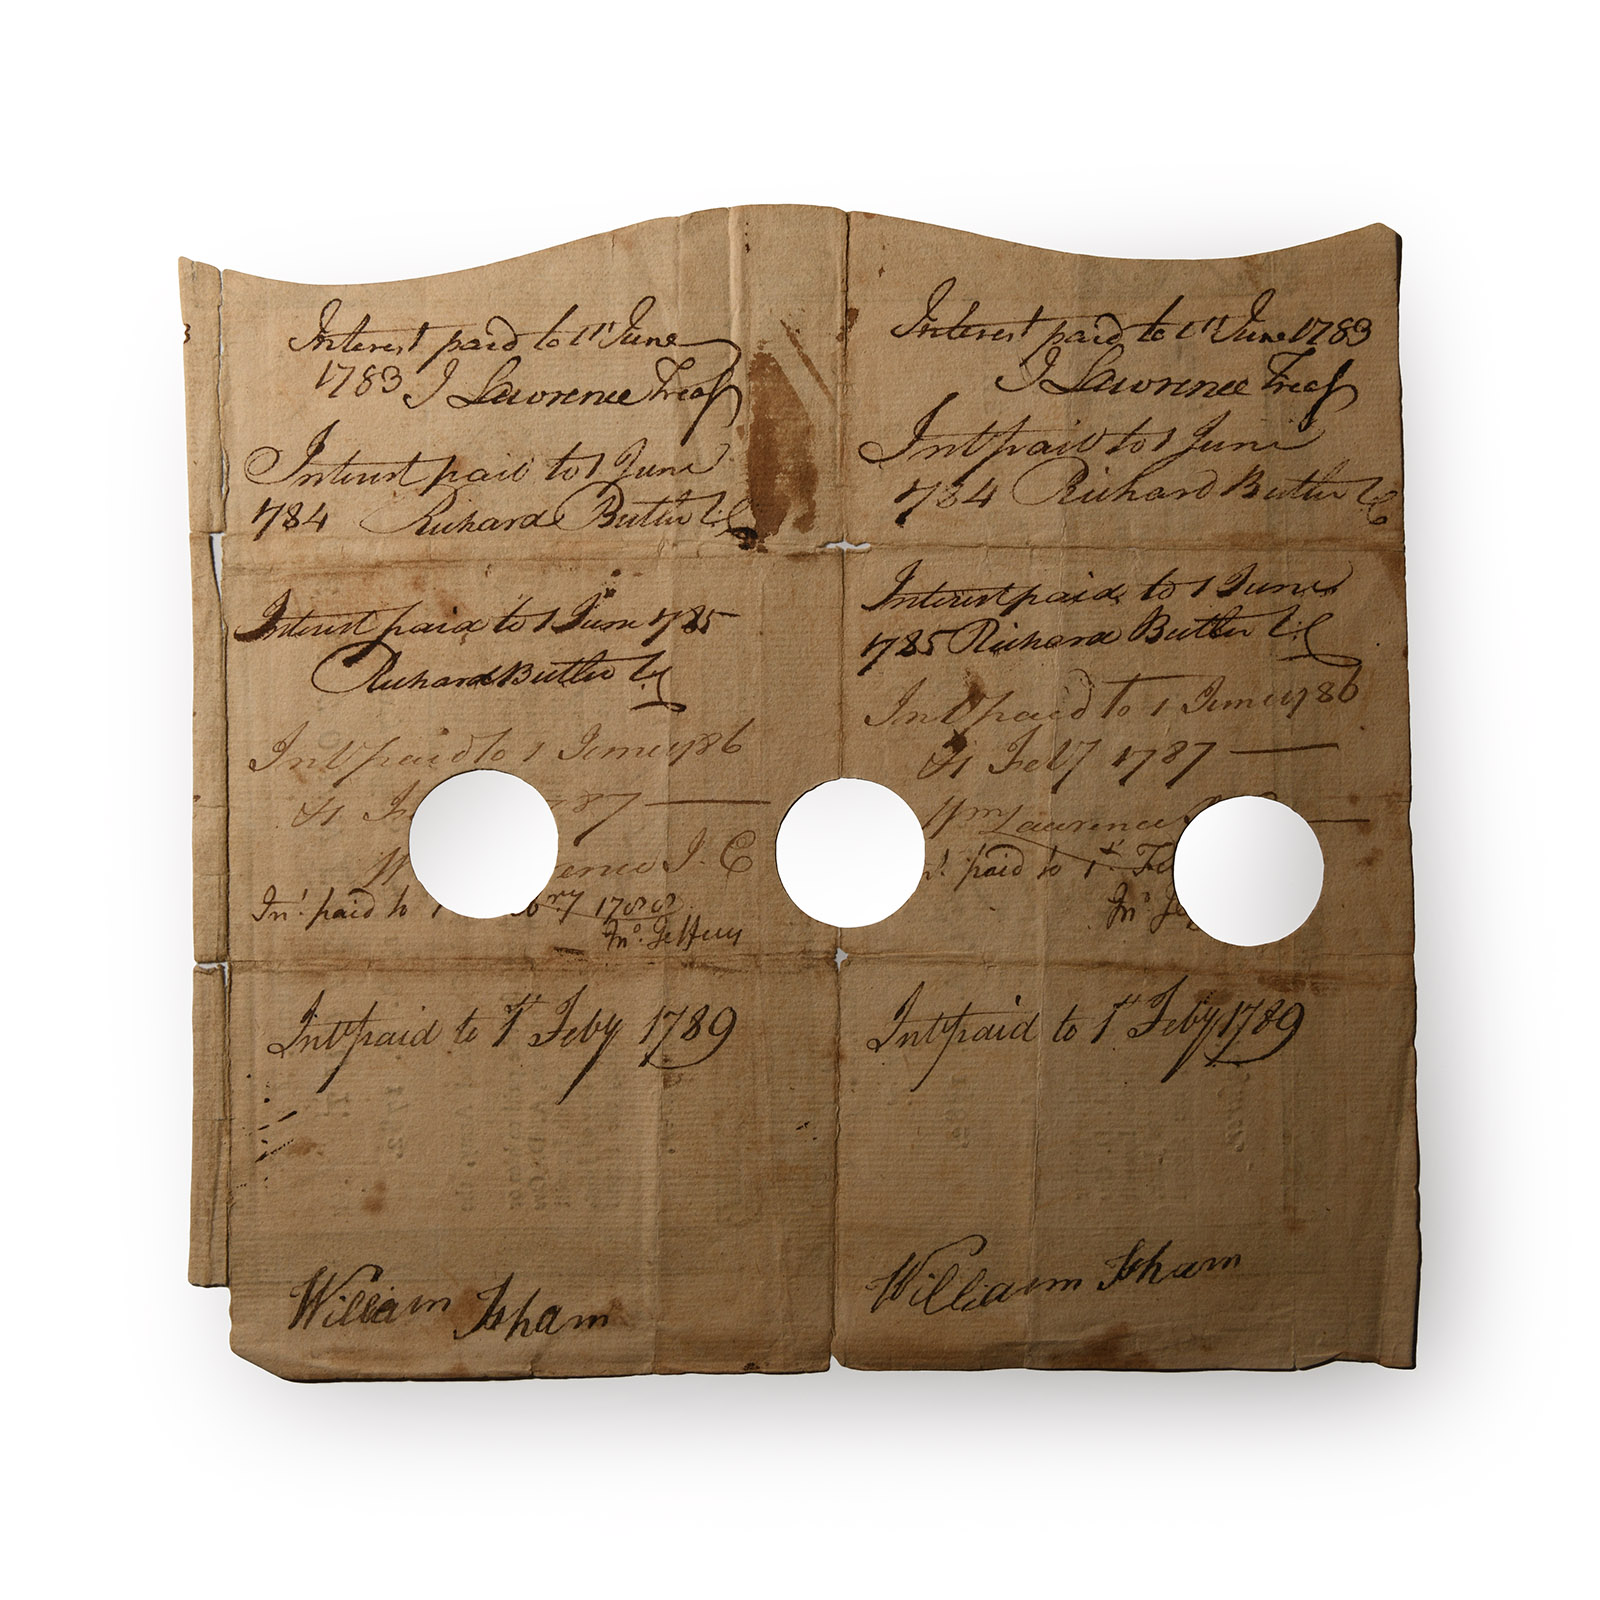 Interest paid to 1st June
1783 J Lawrence Treas
Interest paid to 1 June
1784 Richard Butler
Interest paid to 1 June 1785
Richard Butler
Int paid to 1 June 1786
1787
J. C
Int paid to 1 1788
Jno. Jeffery
Int paid to 1st Feby 1789
William Isham
Interest paid to 1st June 1783
J Lawrence Treas
Int paid to 1 June
1784 Richard Butler
Interest paid to 1 June
1785 Richard Butler
Int paid to 1 June 1786
Feby 1787
Wm Lawrence
paid to 1st
Jno.
Int paid to 1st Feby 1789
William Isham